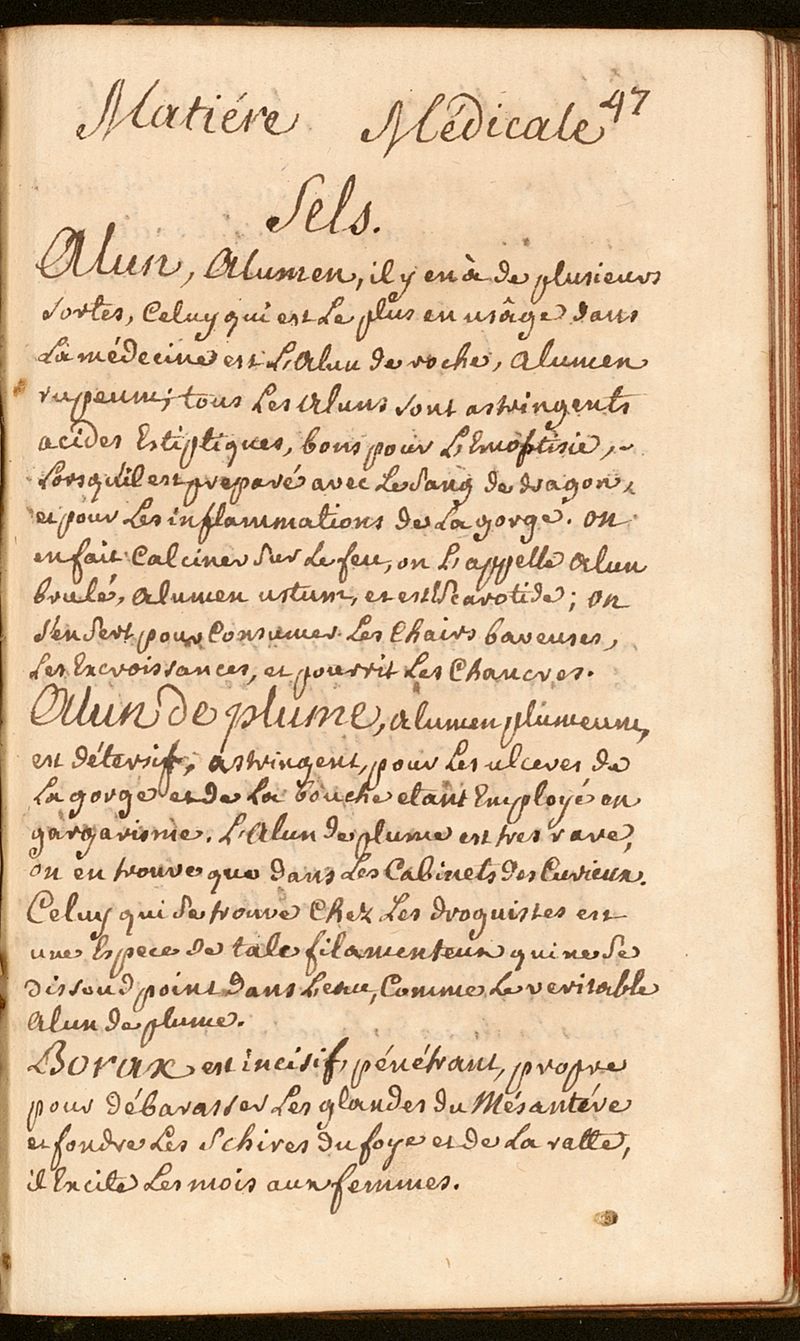 47
Matiére Médicale
Sels.
Alun, Alumen, il y en à de plusieurs
sortes, Celuy qui est Le plus en usâge dans
La médecine est L'Alun de roche, Alumen
rupeum; tous Les Aluns sont astringents
acides Estiptiques, bons pour L'Emoptisie,
Lorsqu'il est preparé avec Le Sang de dragon,
et pour Les inflammations de La gorge. On
en fait Calciner sur Le feu, on L'appelle Alun
brulé, Alumen ustum, et est Escarotide; On
s'en Sert pour Consumer Les Chairs baveuses,
Les Excroissances, et pourrit Les Chancres.
Alun de plume, alumen plumeum,
est détersif, astringent, pour Les ulceres de
La gorge et de La bouche etant Employé en
gargarisme. L'Alun de plume est tres rare,
on en trouve que dans Les Cabinets des Curieux.
Celuy qui Se trouve Chez Les droguistes est
une Espece de talc filamenteux qui ne Se
dissoud point dans L'eau, Comme Le veritable
Alun de plume.
Borax est incisif, pénétrant, propre
pour débarasser Les glandes du Mésantére
et fondre Les Schires du foye et de La ratte,
il Excite Les mois aux femmes.